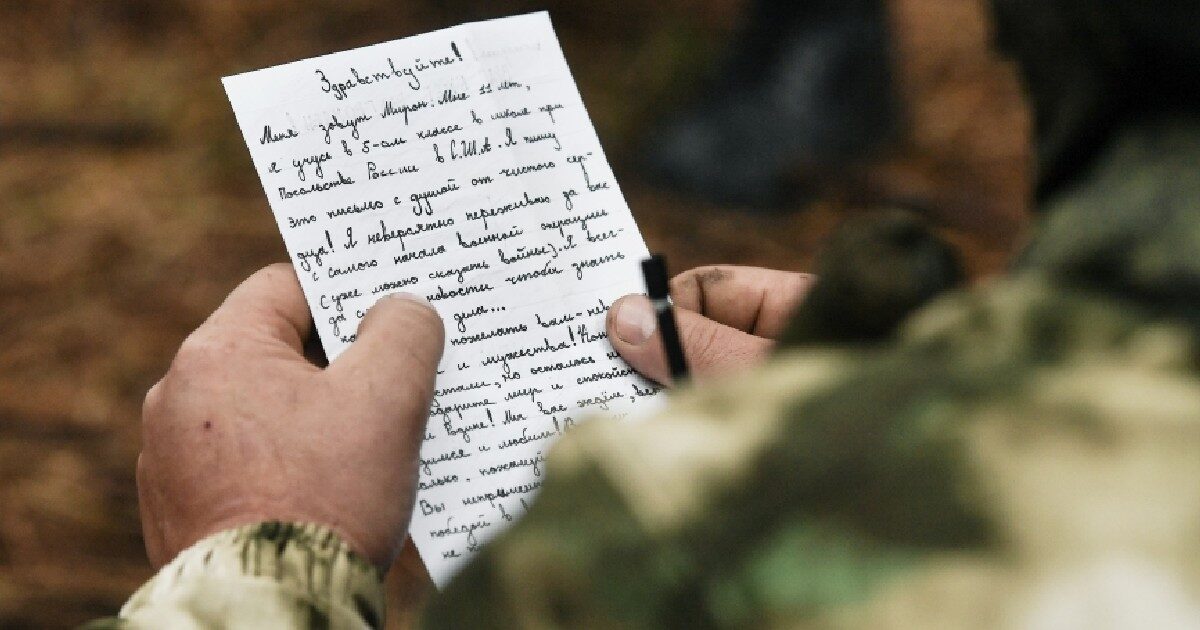 Здравствуйте!
Меня зовут Мирон. Мне 11 лет,
я учусь в 5-ом классе в школе при
Посольстве России в С.Ш.А. Я пишу
это письмо с душой от чистого сер-
дца! Я невероятно переживаю за вас
с самого начала военной операции
(уже можно сказать войны). Я всег-
да новости чтобы знать
дела...
пожелать вам-нев
и мужества! Кон
устали, но осталось
подарите мир и спокойст
Родине! Мы вас ждём,
димся и любим!
олько, пожалуй
Вы непременно
победой в
не